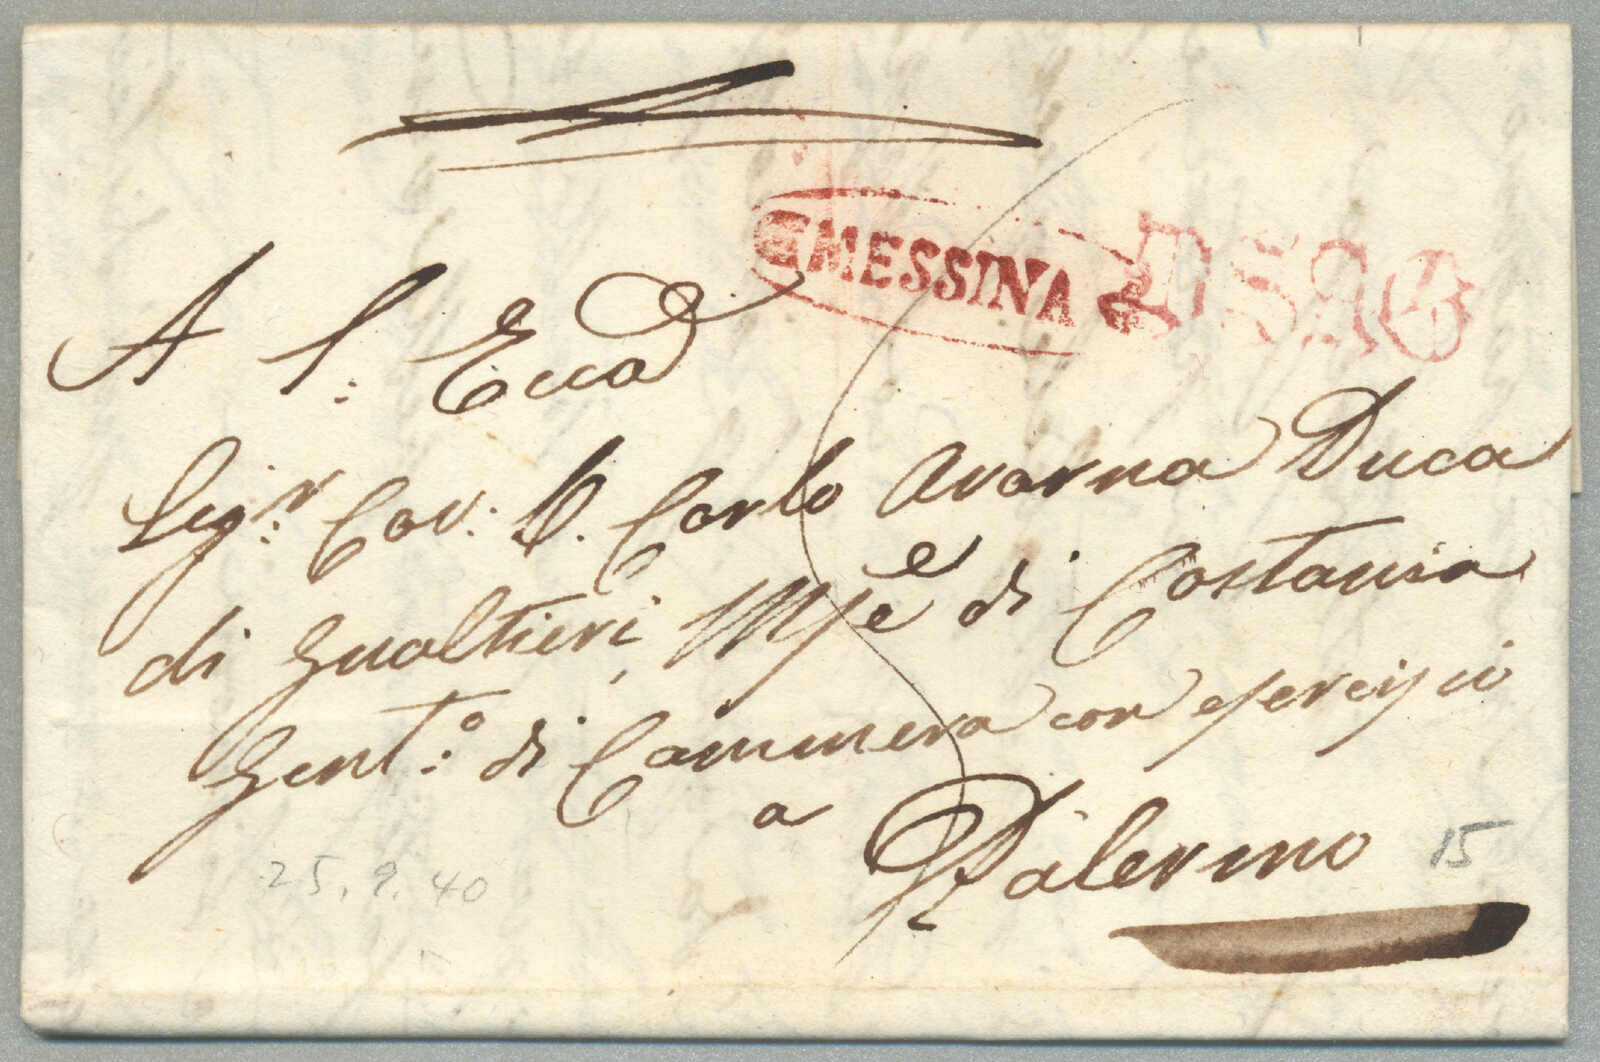 MESSINA
A S: Ecca
Sigr: Cav: D. Carlo Avarna Duca
di Gualtieri, Mse di Castania
Gento: di Cammera con esercizio
a Palermo
15
25. 9. 40